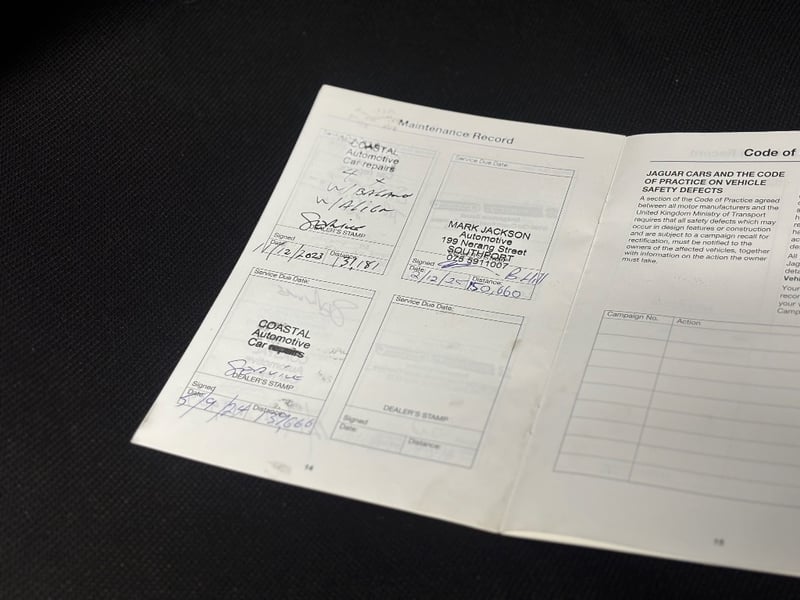 Maintenance Record
Service Due Date:
COASTAL
Automotive
Car repairs
W/BALANCE
W/ALIGN
Service
DEALER'S STAMP
Signed
Date:
Distance:
12/2023
Service Due Date:
MARK JACKSON
Automotive
199 Nerang Street
SOUTHPORT
075 5911007
Signed
Date:
Distance:
2/12/25
150,660
Service Due Date:
COASTAL
Automotive
Car repairs
Service
DEALER'S STAMP
Signed
Date:
Distance:
5/9/24
Service Due Date:
DEALER'S STAMP
Signed
Date:
Distance:
14
Code of
JAGUAR CARS AND THE CODE
OF PRACTICE ON VEHICLE
SAFETY DEFECTS
A section of the Code of Practice agreed
between all motor manufacturers and the
United Kingdom Ministry of Transport
requires that all safety defects which may
occur in design features or construction
and are subject to a campaign recall for
rectification, must be notified to the
owners of the affected vehicles, together
with information on the action the owner
must take.
Campaign No.
Action
15